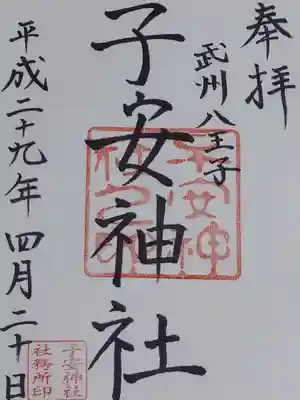 奉拝
武州八王子
子安神社
平成二十九年四月二十日
子安神社
社務所印